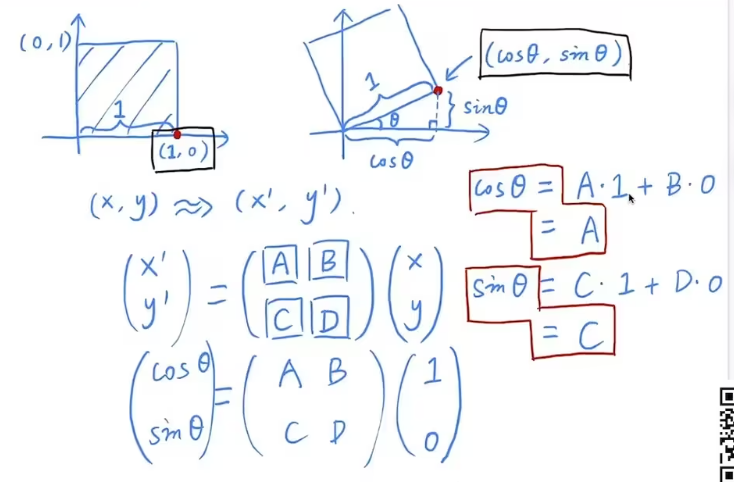 (0,1)
1
(1,0)
1
θ
cosθ
sinθ
(cosθ, sinθ)
(x,y) ⇝ (x', y').
(x' y') = (A B C D)(x y)
(cosθ sinθ) = (A B C D)(1 0)
cosθ = A·1 + B·0
= A
sinθ = C·1 + D·0
= C